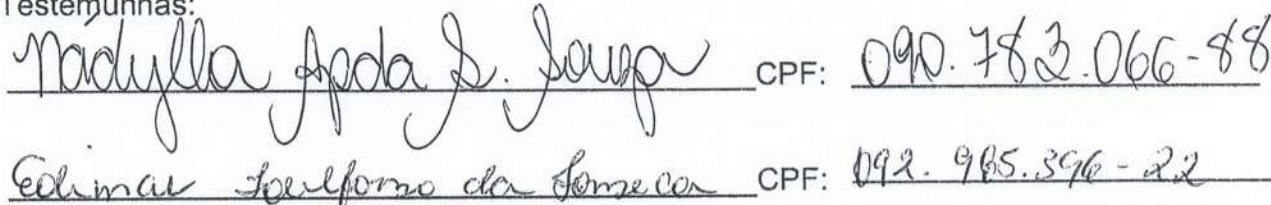 Testemunhas:
Nádylla Apda S. Souza CPF: 090.783.066-88
Edimar da Fonseca CPF: 092.985.396-22